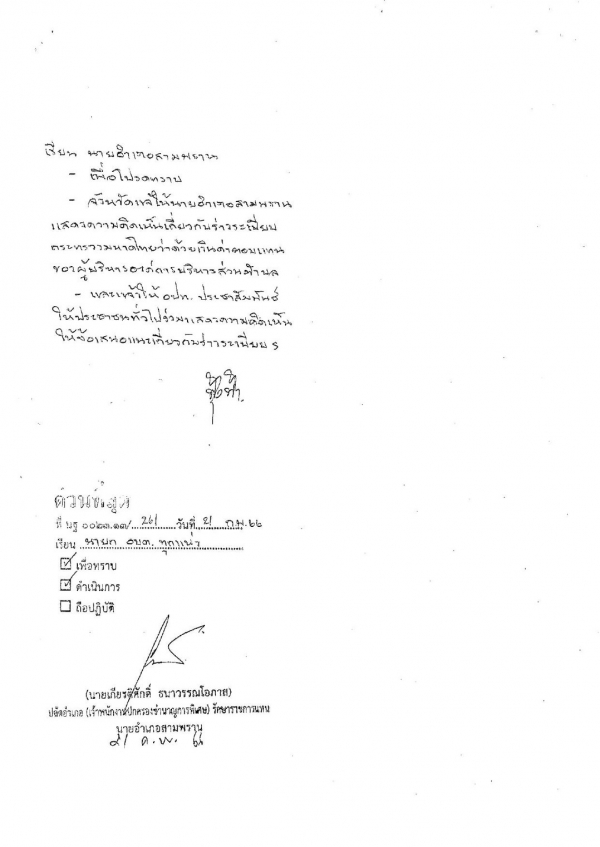 เรียน นายอำเภอสามพราน
- เพื่อโปรดทราบ
- จังหวัดแจ้งให้นายอำเภอสามพราน
แสดงความคิดเห็นเกี่ยวกับร่างระเบียบ
กระทรวงมหาดไทยว่าด้วยเงินค่าตอบแทน
ของผู้บริหารองค์การบริหารส่วนตำบล
- และแจ้งให้ อปท. ประชาสัมพันธ์
ให้ประชาชนทั่วไปร่วมแสดงความคิดเห็น
ให้ข้อเสนอแนะเกี่ยวกับร่างระเบียบ ฯ
ด่วนที่สุด
ที่ นฐ ๐๐๒๓.๑๓/ 261 วันที่ 21 ก.พ. ๖๖
เรียน นายก อบต. ทุกแห่ง
☑ เพื่อทราบ
☑ ดำเนินการ
☐ ถือปฏิบัติ
(นายเกียรติศักดิ์ ธนาวรรณโอภาส)
ปลัดอำเภอ (เจ้าพนักงานปกครองชำนาญการพิเศษ) รักษาราชการแทน
นายอำเภอสามพราน